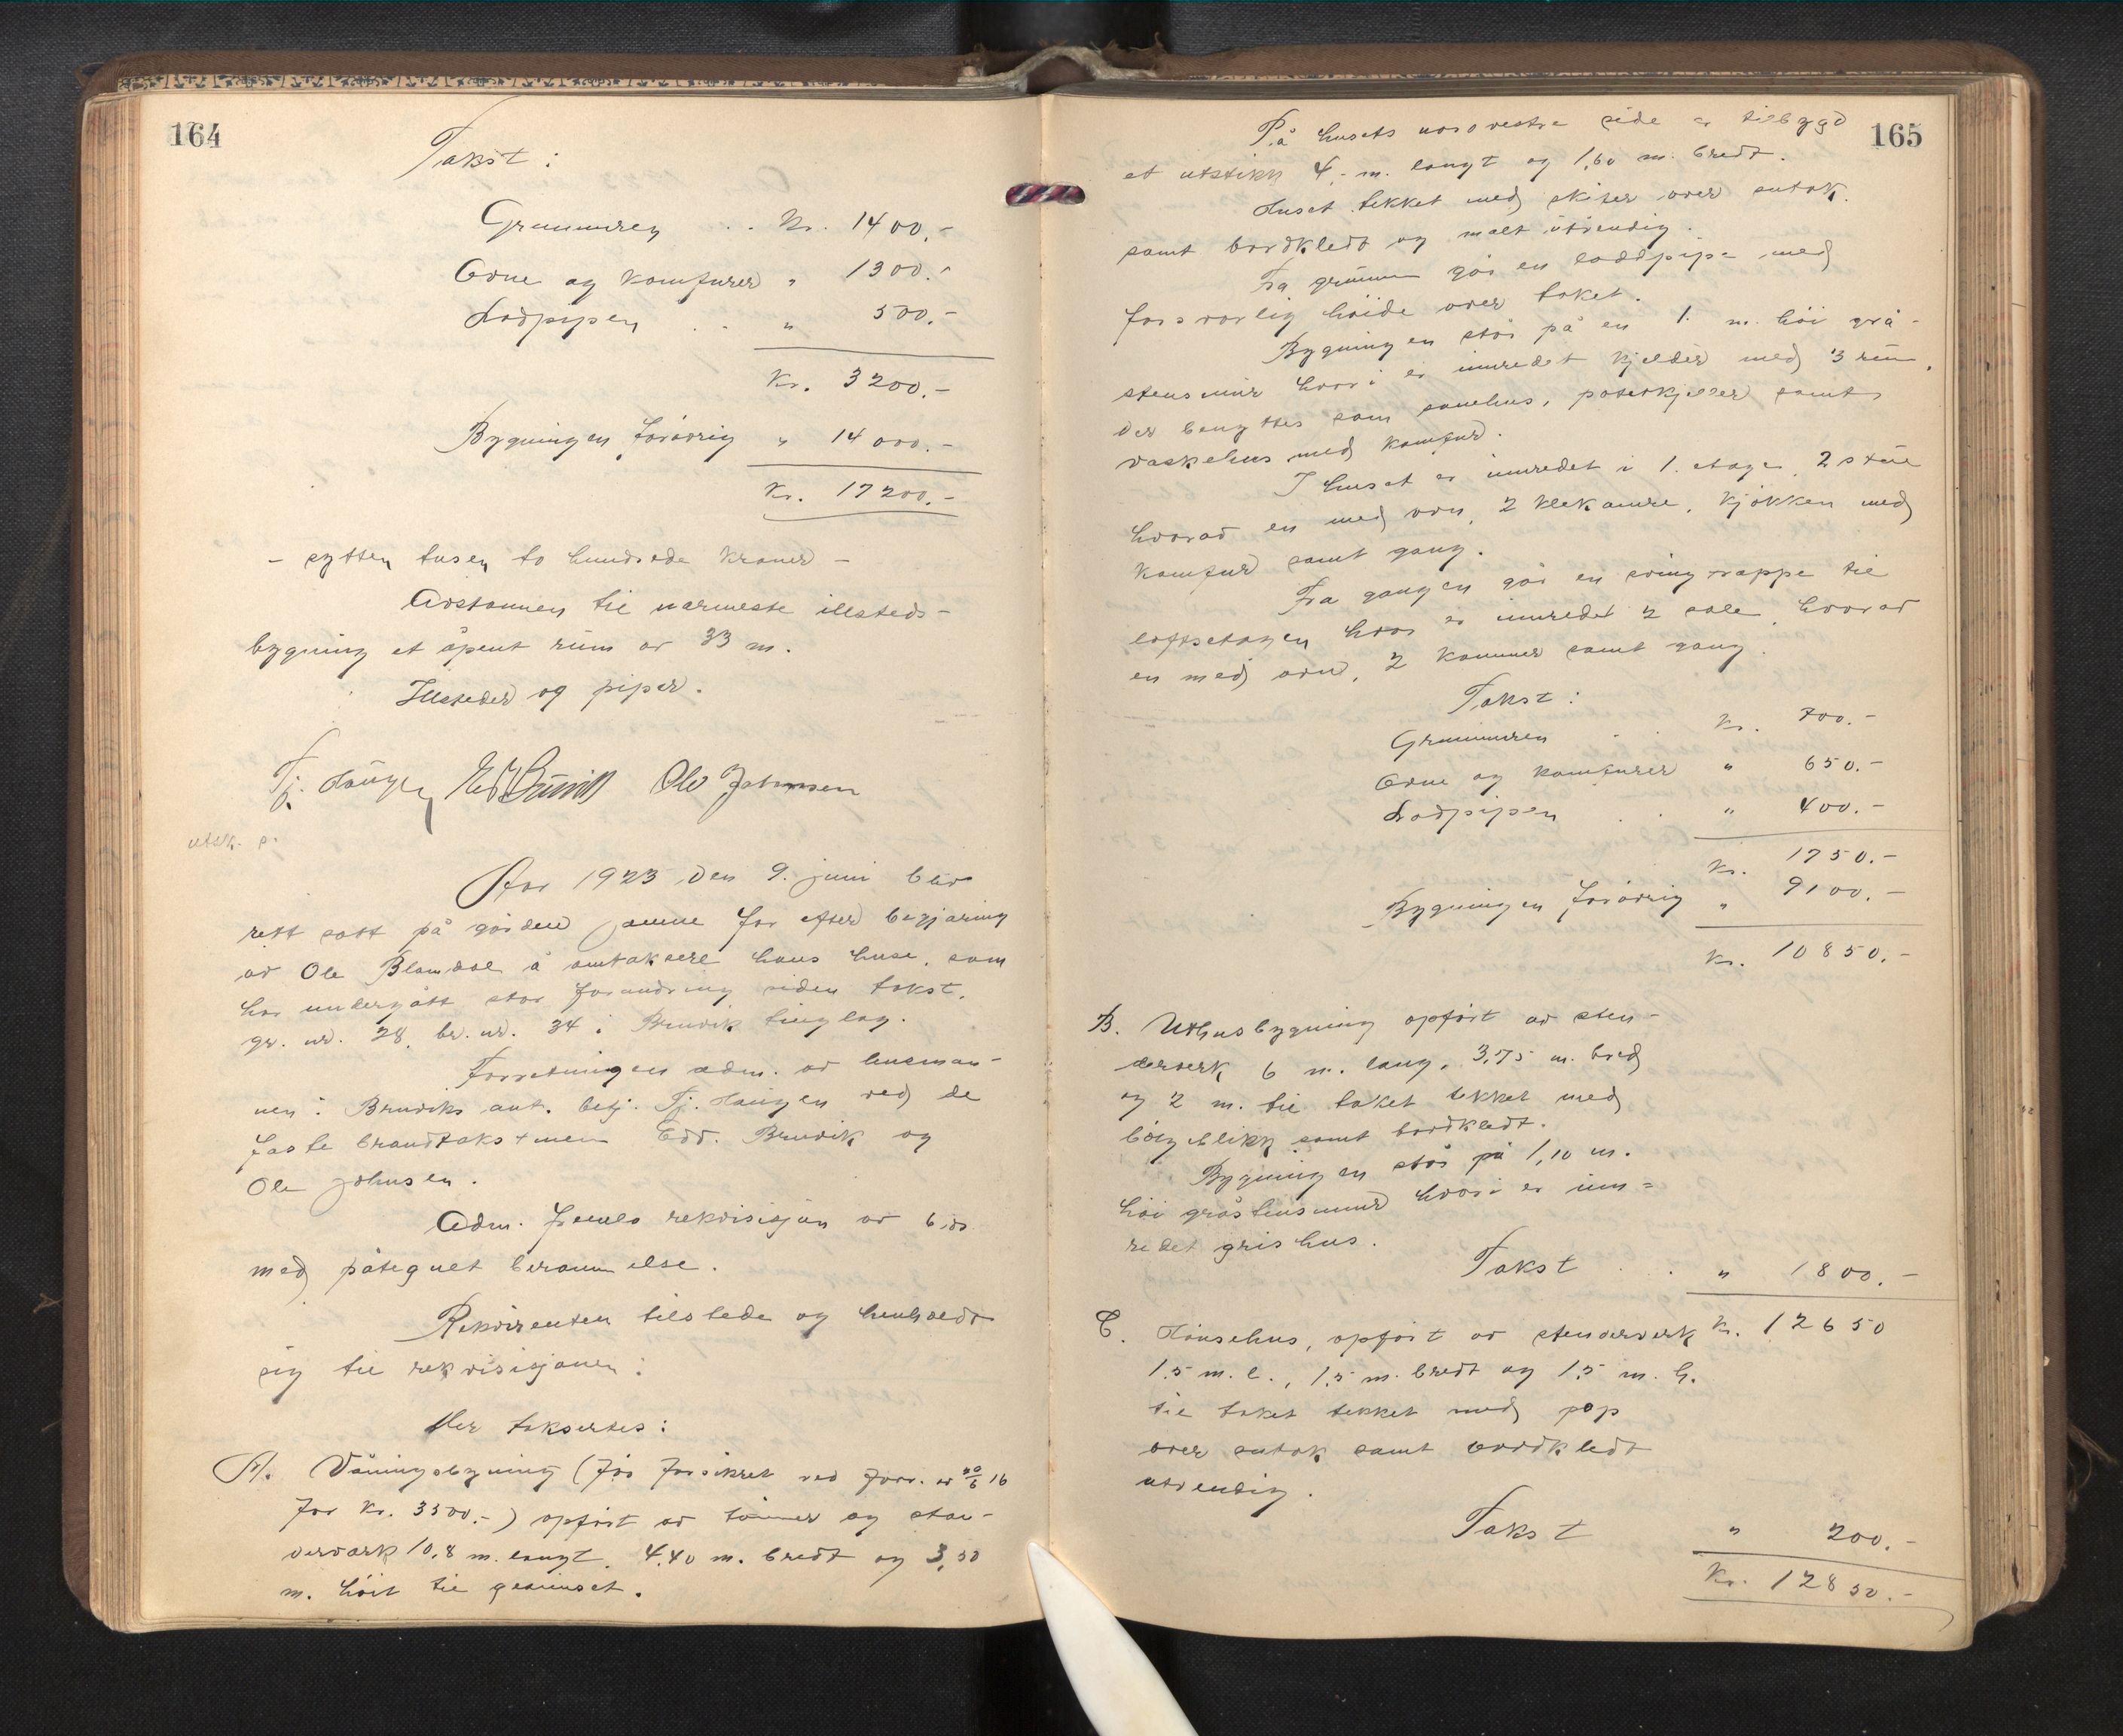 164
Takst:
Grunmuren . . Kr. 1400.-
Ovne og komfurer " 1300.-
Lodpipen . . " 500.-
Kr. 3200.-
Bygningen forøvrig " 14000.-
Kr. 17200.-
- sytten tusen to hundrede kroner -
Avstannen til nærmeste illsteds-
bygning et åpent rüm av 33 m.
Illsteder og piper.
Tj. Haugen Ed Brüvik Ole Johnsen
utsk. s.
Aar 1923 den 9. juni blev
rett satt på gården for efter begjæring
av Ole Blomdal å omtaksere hans huse, som
har undergått stor forandring siden takst.
gr. nr. 28, br. nr. 34 i Bruvik tinglag.
Forretningen adm. av lensman-
nen i Bruviks aut. betj. Tj. Haugen ved de
faste brandtakstmenn Edv. Bruvik og
Ole Johnsen.
Adm. fremla rekvisisjon av
med påtegnet berammelse.
Rekvirenten tilstede og henholdt
sig til rekvisisjonen:
Her taksertes:
A. Våningsbygning (før forsikret ved forr. av 20/6 16
for kr. 3500.-) opført av tømmer og sten-
derverk 10,8 m. langt, 4.40 m. bredt og 3,50
m. høit til gesimset.
165
På husets nordvestre side er tilbygd
et utstikk 4,- m. langt og 1,60 m. bredt.
Huset tekket med skifer over sutak
samt bordkledt og malt ütvendig.
Fra grunnen går en loddpipe med
forsvarlig høide over taket.
Bygningen står på en 1. m. høi grå-
stensmür hvori er innredet kjelder med 3 rüm,
der benyttes som potetkjeller samt
vaskehus med komfur.
I huset er innredet i 1. etage 2 stüe
hvorav en med ovn, 2 klekamre, kjøkken med
komfur samt gang.
Fra gangen går en svingtrappe til
loftsetagen hvor er innredet 2 sale, hvorav
en med ovn, 2 kammer samt gang.
Takst:
Grunnmuren . . Kr. 700.-
Ovne og komfurer " 650.-
Lodpipen . . " 400.-
Kr. 1750.-
Bygningen forøvrig " 9100.-
Kr. 10850.-
B. Uthusbygning opført av sten-
derverk 6 m. lang, 3,75 m. bred
og 2 m. til taket tekket med
bølgeblikk samt bordkledt.
Bygningen står på 1,10 m.
høi gråstensmur hvori er inn-
redet grishus.
Takst . . " 1800.-
C. Hønsehus, opført av stenderverk Kr. 12650
1.5 m. l., 1.5 m. bredt og 1.5 m. h.
til taket tekket med pap
over sutak samt bordkledt
utvendig.
Takst " 200.-
Kr. 12850.-